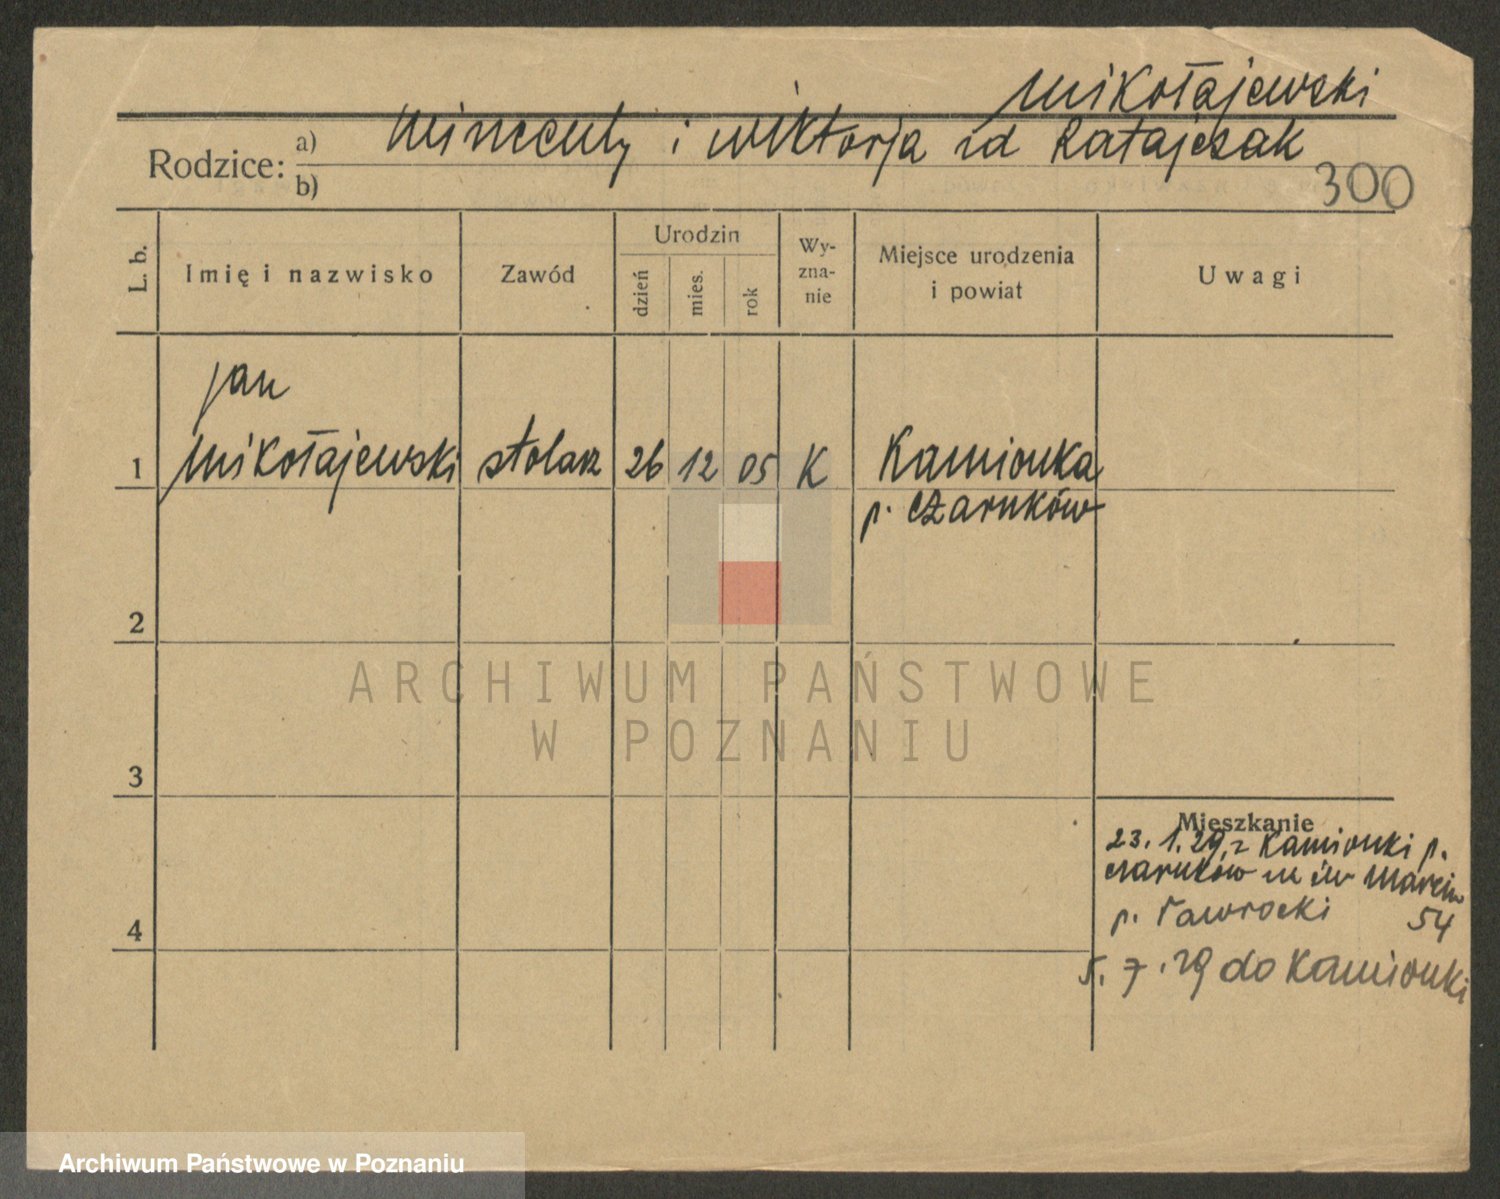 Mikołajewski
Rodzice: a) Wincenty i Wiktorja zd Ratajczak
b)
300
L. b.
Imię i nazwisko
Zawód
Urodzin
dzień
mies.
rok
Wy-
zna-
nie
Miejsce urodzenia
i powiat
Uwagi
Jan
1 Mikołajewski stolarz 26 12 05 K Kamionka
p. Czarnków
2
3
4
Mieszkanie
23.1.29. z Kamionki p.
Czarnków św Marcin
p. Nawrocki 54
5.7.29 do Kamionki
ARCHIWUM PAŃSTWOWE
W POZNANIU
Archiwum Państwowe w Poznaniu